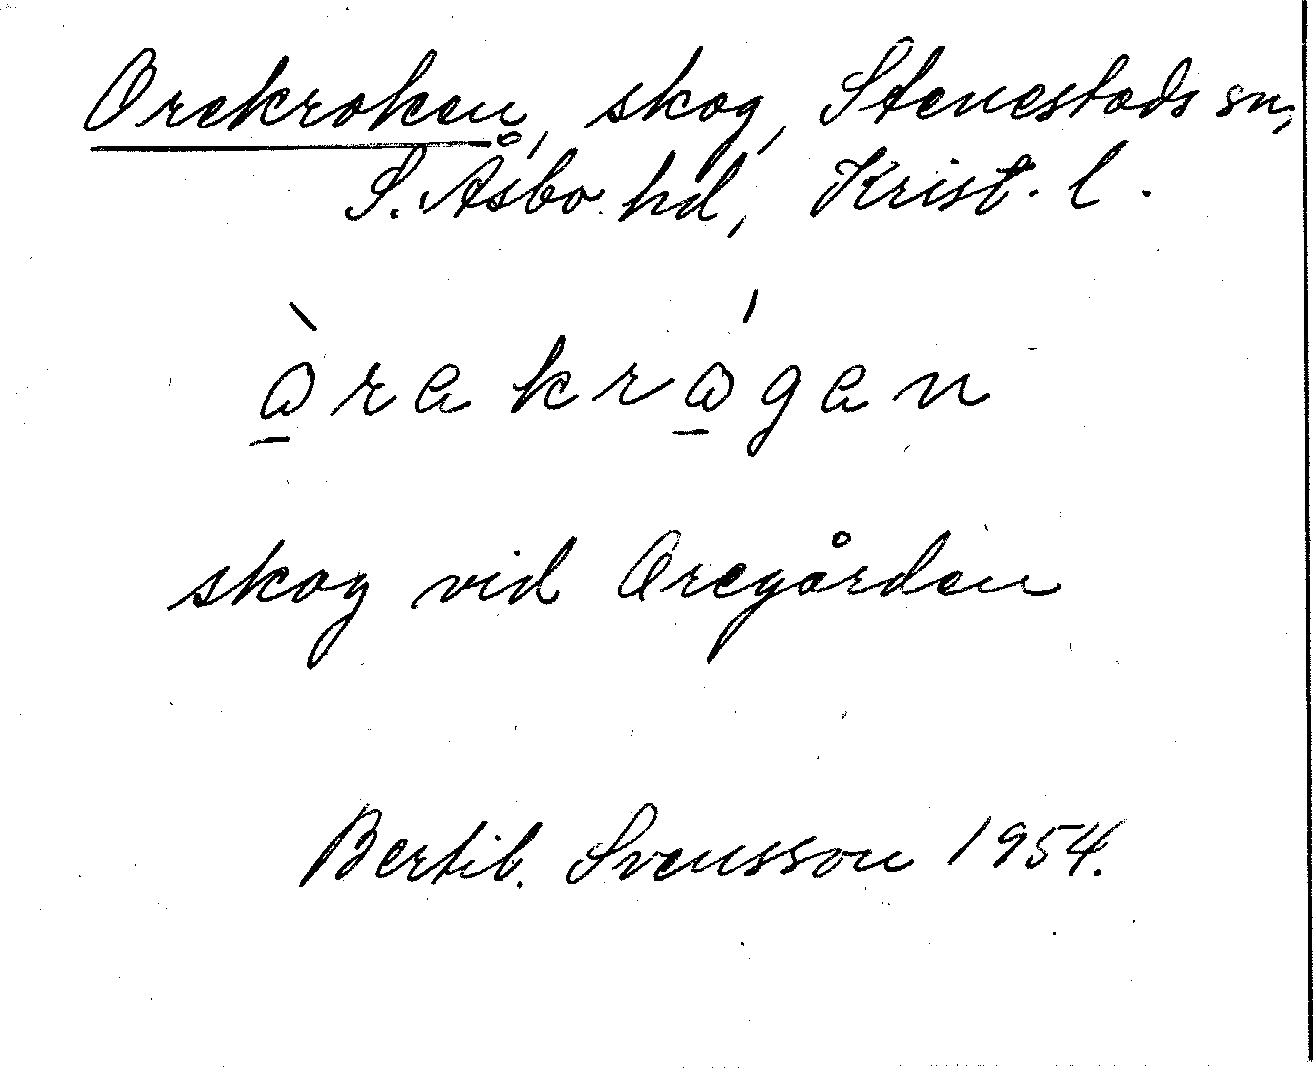 Orekroken, skog, Stenestads sn,
S. Åsbo hd, Krist. l.
ò̱rekró̱gen
skog vid Oregården
Bertil Svensson 1954.